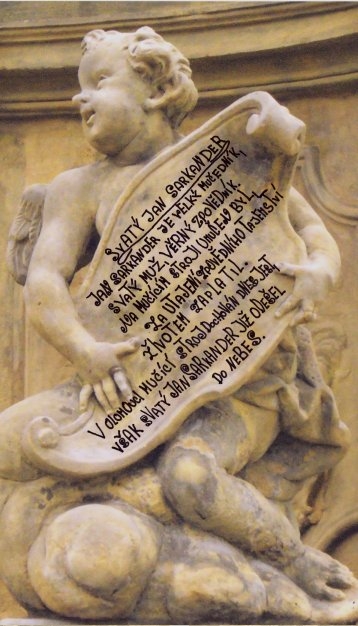 SVATÝ JAN SARKANDER
JAN SARKANDER JE VELKÝ MUČEDNÍK,
SVATÝ MUŽ, VĚRNÝ ZPOVĚDNÍK,
NA MUČÍCÍM STROJI UMUČENÝ BYL,
ZA UTAJENÍ ZPOVĚDNÍHO TAJEMSTVÍ
ŽIVOTEM ZAPLATIL.
V OLOMOUCI MUČÍCÍ STROJ DOCHOVÁN DNES JEST,
VŠAK SVATÝ JAN SARKANDER JIŽ ODEŠEL
DO NEBES.